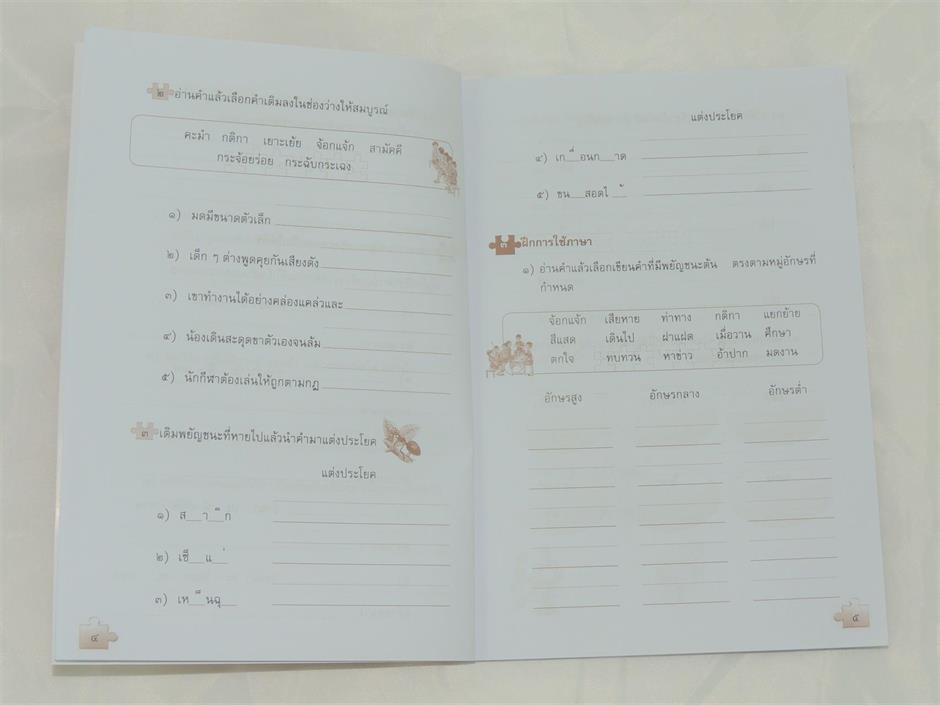 ๒ อ่านคำแล้วเลือกคำเติมลงในช่องว่างให้สมบูรณ์
คะมำ กติกา เยาะเย้ย จ้อกแจ้ก สามัคคี
กระจ้อยร่อย กระฉับกระเฉง
๑) มดมีขนาดตัวเล็ก
๒) เด็ก ๆ ต่างพูดคุยกันเสียงดัง
๓) เขาทำงานได้อย่างคล่องแคล่วและ
๔) น้องเดินสะดุดขาตัวเองจนล้ม
๕) นักกีฬาต้องเล่นให้ถูกตามกฎ
๓ เติมพยัญชนะที่หายไปแล้วนำคำมาแต่งประโยค
แต่งประโยค
๑) ส__า_ึก
๒) เซ็__แ_่
๓) เห_ื_นฉุ__
๔
แต่งประโยค
๔) เก_ื่_อนก__าด
๕) ขน__สอดไ_้
๓ ฝึกการใช้ภาษา
๑) อ่านคำแล้วเลือกเขียนคำที่มีพยัญชนะต้น ตรงตามหมู่อักษรที่
กำหนด
จ้อกแจ้ก เสียหาย ท่าทาง กติกา แยกย้าย
สีแสด เดินไป ฝาแฝด เมื่อวาน ศึกษา
ตกใจ ทบทวน หาข่าว อ้าปาก มดงาน
อักษรสูง อักษรกลาง อักษรต่ำ
๕